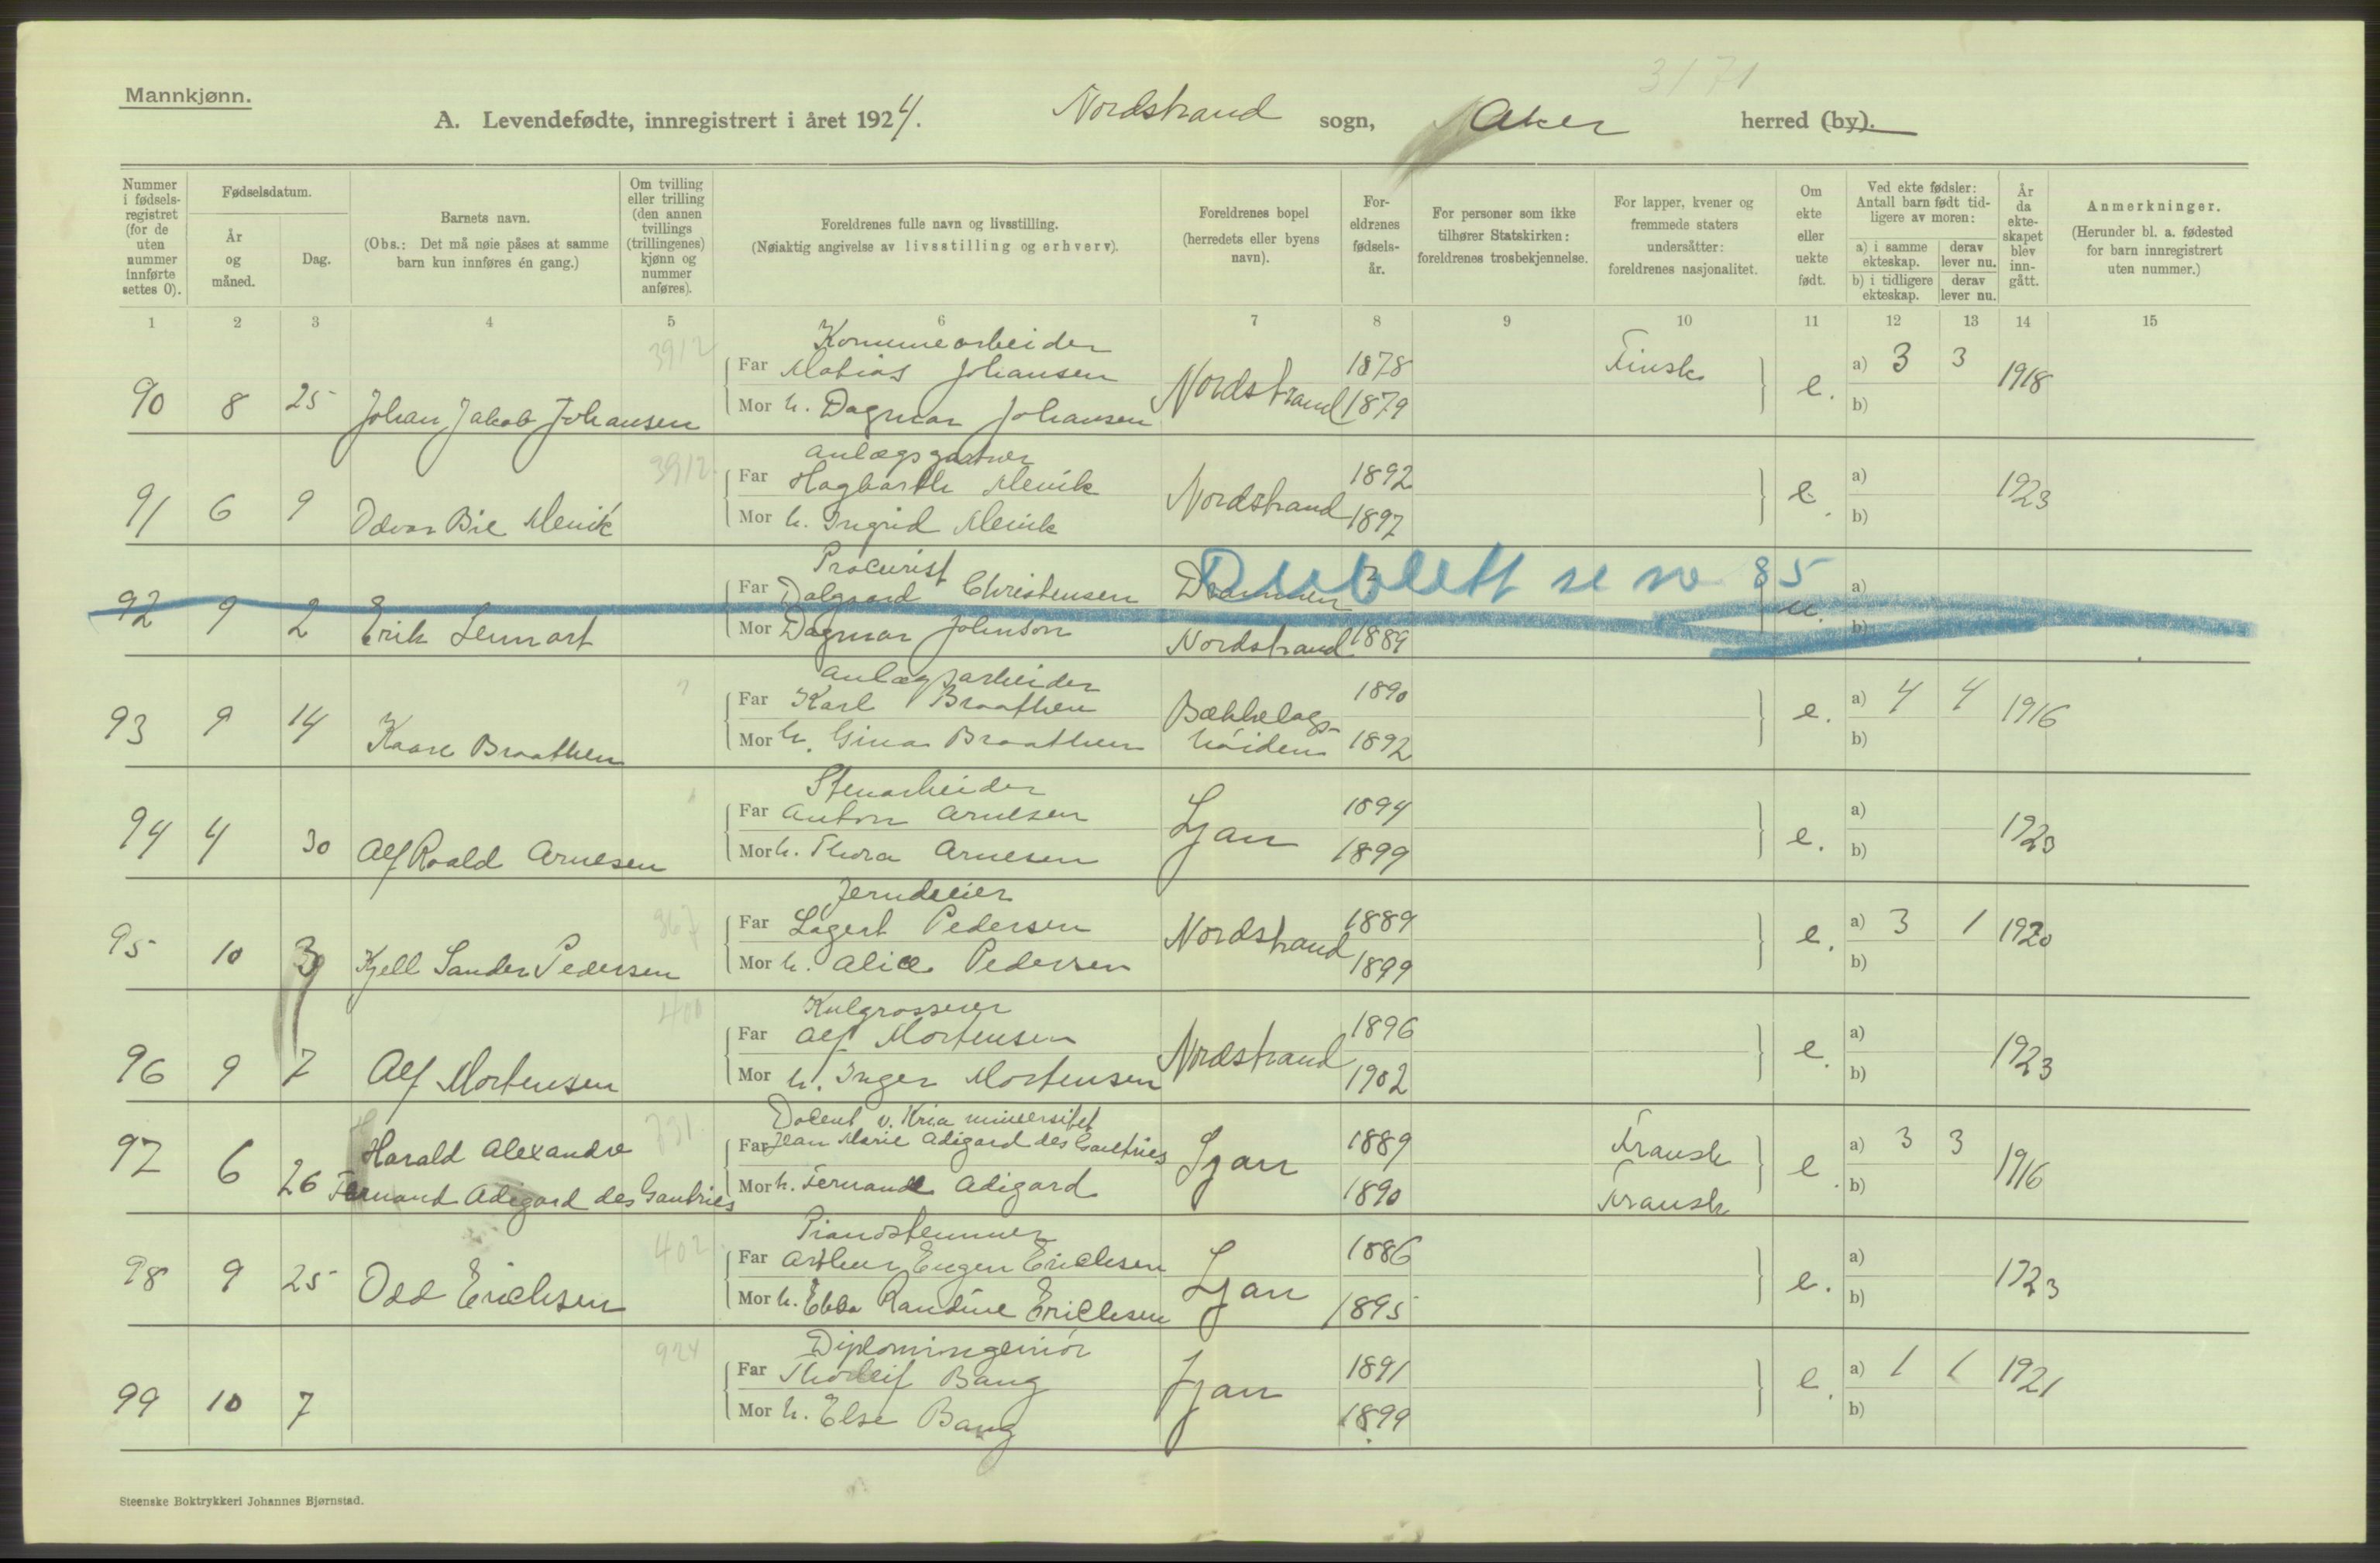 Mannkjønn.
3171
A. Levendefødte, innregistrert i året 1924. Nordstrand sogn, Aker herred (by).
Nummer i fødsels-registret (for de uten nummer innførte settes 0).
Fødselsdatum.
År og måned.
Dag.
Barnets navn.
(Obs.: Det må nøie påses at samme barn kun innføres én gang.)
Om tvilling eller trilling (den annen tvillings (trillingenes) kjønn og nummer anføres).
Foreldrenes fulle navn og livsstilling.
(Nøiaktig angivelse av livsstilling og erhverv).
Foreldrenes bopel (herredets eller byens navn).
For-eldrenes fødsels-år.
For personer som ikke tilhører Statskirken: foreldrenes trosbekjennelse.
For lapper, kvener og fremmede staters undersåtter: foreldrenes nasjonalitet.
Om ekte eller uekte født.
Ved ekte fødsler: Antall barn født tid-ligere av moren:
a) i samme ekteskap.
derav lever nu.
b) i tidligere ekteskap.
derav lever nu.
År da ekte-skapet blev inn-gått.
Anmerkninger.
(Herunder bl. a. fødested for barn innregistrert uten nummer.)
1 2 3 4 5 6 7 8 9 10 11 12 13 14 15
3912
Kommearbeider
Far Matias Johansen 1878 Finsk a) 3 3
90 8 25 Johan Jakob Johansen Nordstrand e. 1918
Mor h. Dagmar Johansen 1879 b)
3912
Anlægsgartner
Far Hagbarth Mevik 1892 a)
91 6 9 Odvar Bie Mevik Nordstrand e. 1923
Mor h. Ingrid Mevik 1897 b)
Procurist
Far Dalgaard Christensen Drammen ? a)
Dublett se no 85
92 9 2 Erik Lennart u.
Mor Dagmar Johnson Nordstrand 1889 b)
Anlægsarbeider
Far Karl Braathen 1890 a) 4 4
93 9 14 Kaare Braathen Bækkelags-høiden e. 1916
Mor h. Gina Braathen 1892 b)
Stenarbeider
Far Anton Arnesen 1894 a)
94 4 30 Alf Roald Arnesen Ljan e. 1923
Mor h. Thora Arnesen 1899 b)
367
Jerndreier
Far Lagert Pedersen 1889 a) 3 1
95 10 3 Kjell Sander Pedersen Nordstrand e. 1920
Mor h. Alice Pedersen 1899 b)
400
Kulgrosserer
Far Alf Mortensen 1896 a)
96 9 7 Alf Mortensen Nordstrand e. 1923
Mor h. Inger Mortensen 1902 b)
731
Docent v. Kria universitet
Far Jean Marie Adigard des Gautries 1889 Fransk a) 3 3
97 6 26 Harald Alexandre Fernand Adigard des Gautries Ljan e. 1916
Mor h. Fernande Adigard 1890 Fransk b)
402
Pianostemmer
Far Arthur Eugen Erichsen 1886 a)
98 9 25 Odd Erichsen Ljan e. 1923
Mor h. Ebba Randine Erichsen 1895 b)
924
Diplomingeniør
Far Thorleif Bang 1891 a) 1 1
99 10 7 Ljan e. 1921
Mor h. Else Bang 1899 b)
Steenske Boktrykkeri Johannes Bjørnstad.